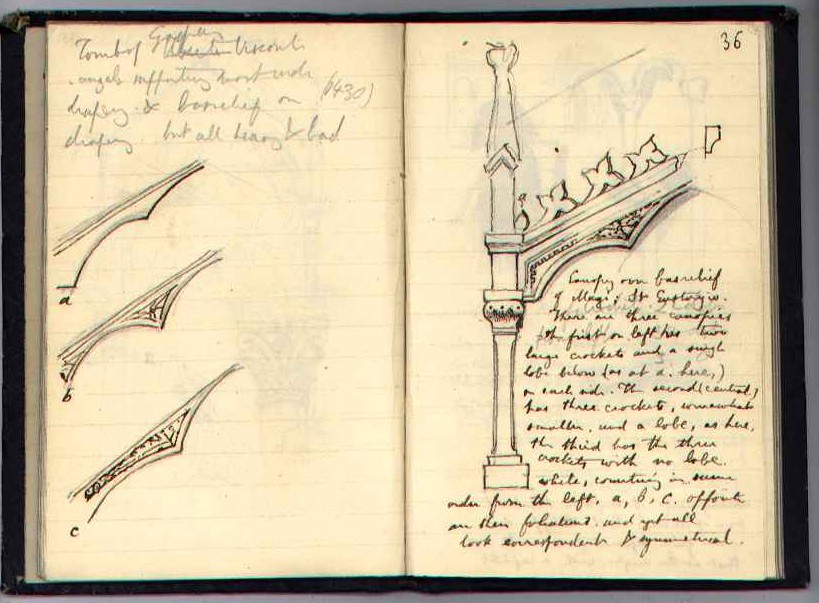 Tomb of Gaspar Visconti
angels supporting most rich
drapery & basrelief on (1430)
drapery. but all heavy & bad
a
b
c
36
a
Canopy over basrelief
of Magi; St Eustorgio.
There are three canopies
the first on left has two
large crockets and a single
lobe below (as at a. here,)
on each side. The second (central)
has three crockets, somewhat
smaller. and a lobe, as here,
the third has the three
crockets with no lobe.
while, counting in same
order from the left, a, b, c. opposite
are their foliations. and yet all
look correspondent & symmetrical.